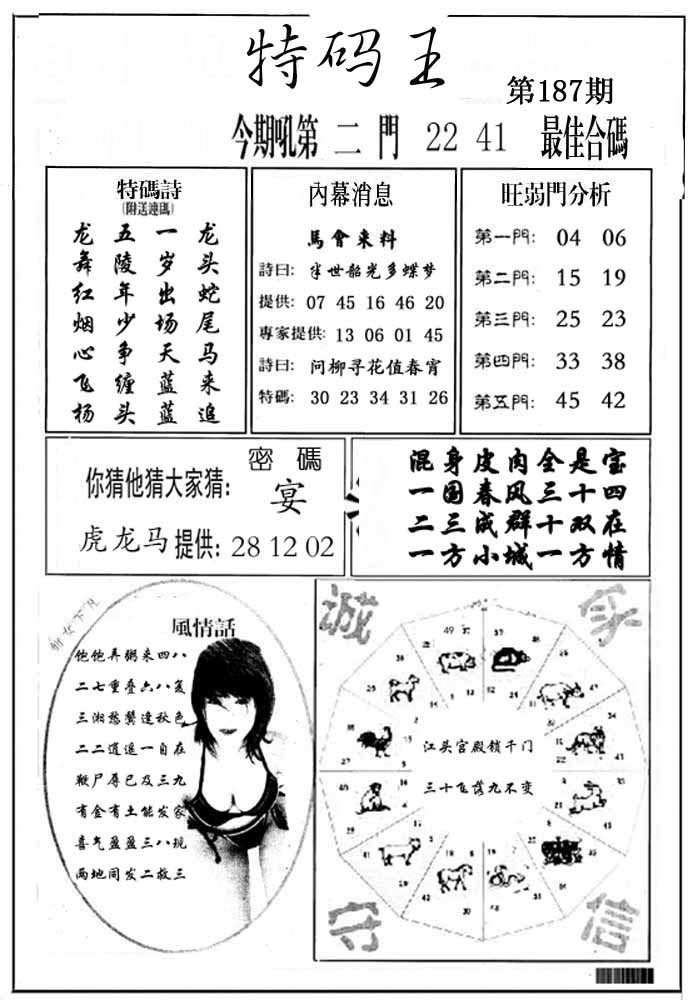 特码王
第187期
今期吼第 二 門 22 41 最佳合碼
特碼詩
(附送連碼)
龙 五 一 龙
舞 陵 岁 头
红 年 出 蛇
烟 少 场 尾
心 争 天 马
飞 缠 蓝 来
杨 头 蓝 追
內幕消息
馬會来料
詩曰: 半世韶光多蝶梦
提供: 07 45 16 46 20
專家提供: 13 06 01 45
詩曰: 问柳寻花值春宵
特碼: 30 23 34 31 26
旺弱門分析
第一門: 04 06
第二門: 15 19
第三門: 25 23
第四門: 33 38
第五門: 45 42
密 碼
你猜他猜大家猜: 宴
虎龙马 提供: 28 12 02
混身皮肉全是宝
一国春风三十四
二三成群十双在
一方小城一方情
下凡
風情話
弄粥来四八
二七重叠六八
三湘愁鬓逢秋色
二二逍遥一自在
鞭尸辱已及三九
有金有土能发家
喜气盈盈三八
两地同发二救三
诚
家
守
信
江头宫殿锁千门
三十飞落九不变
49 37